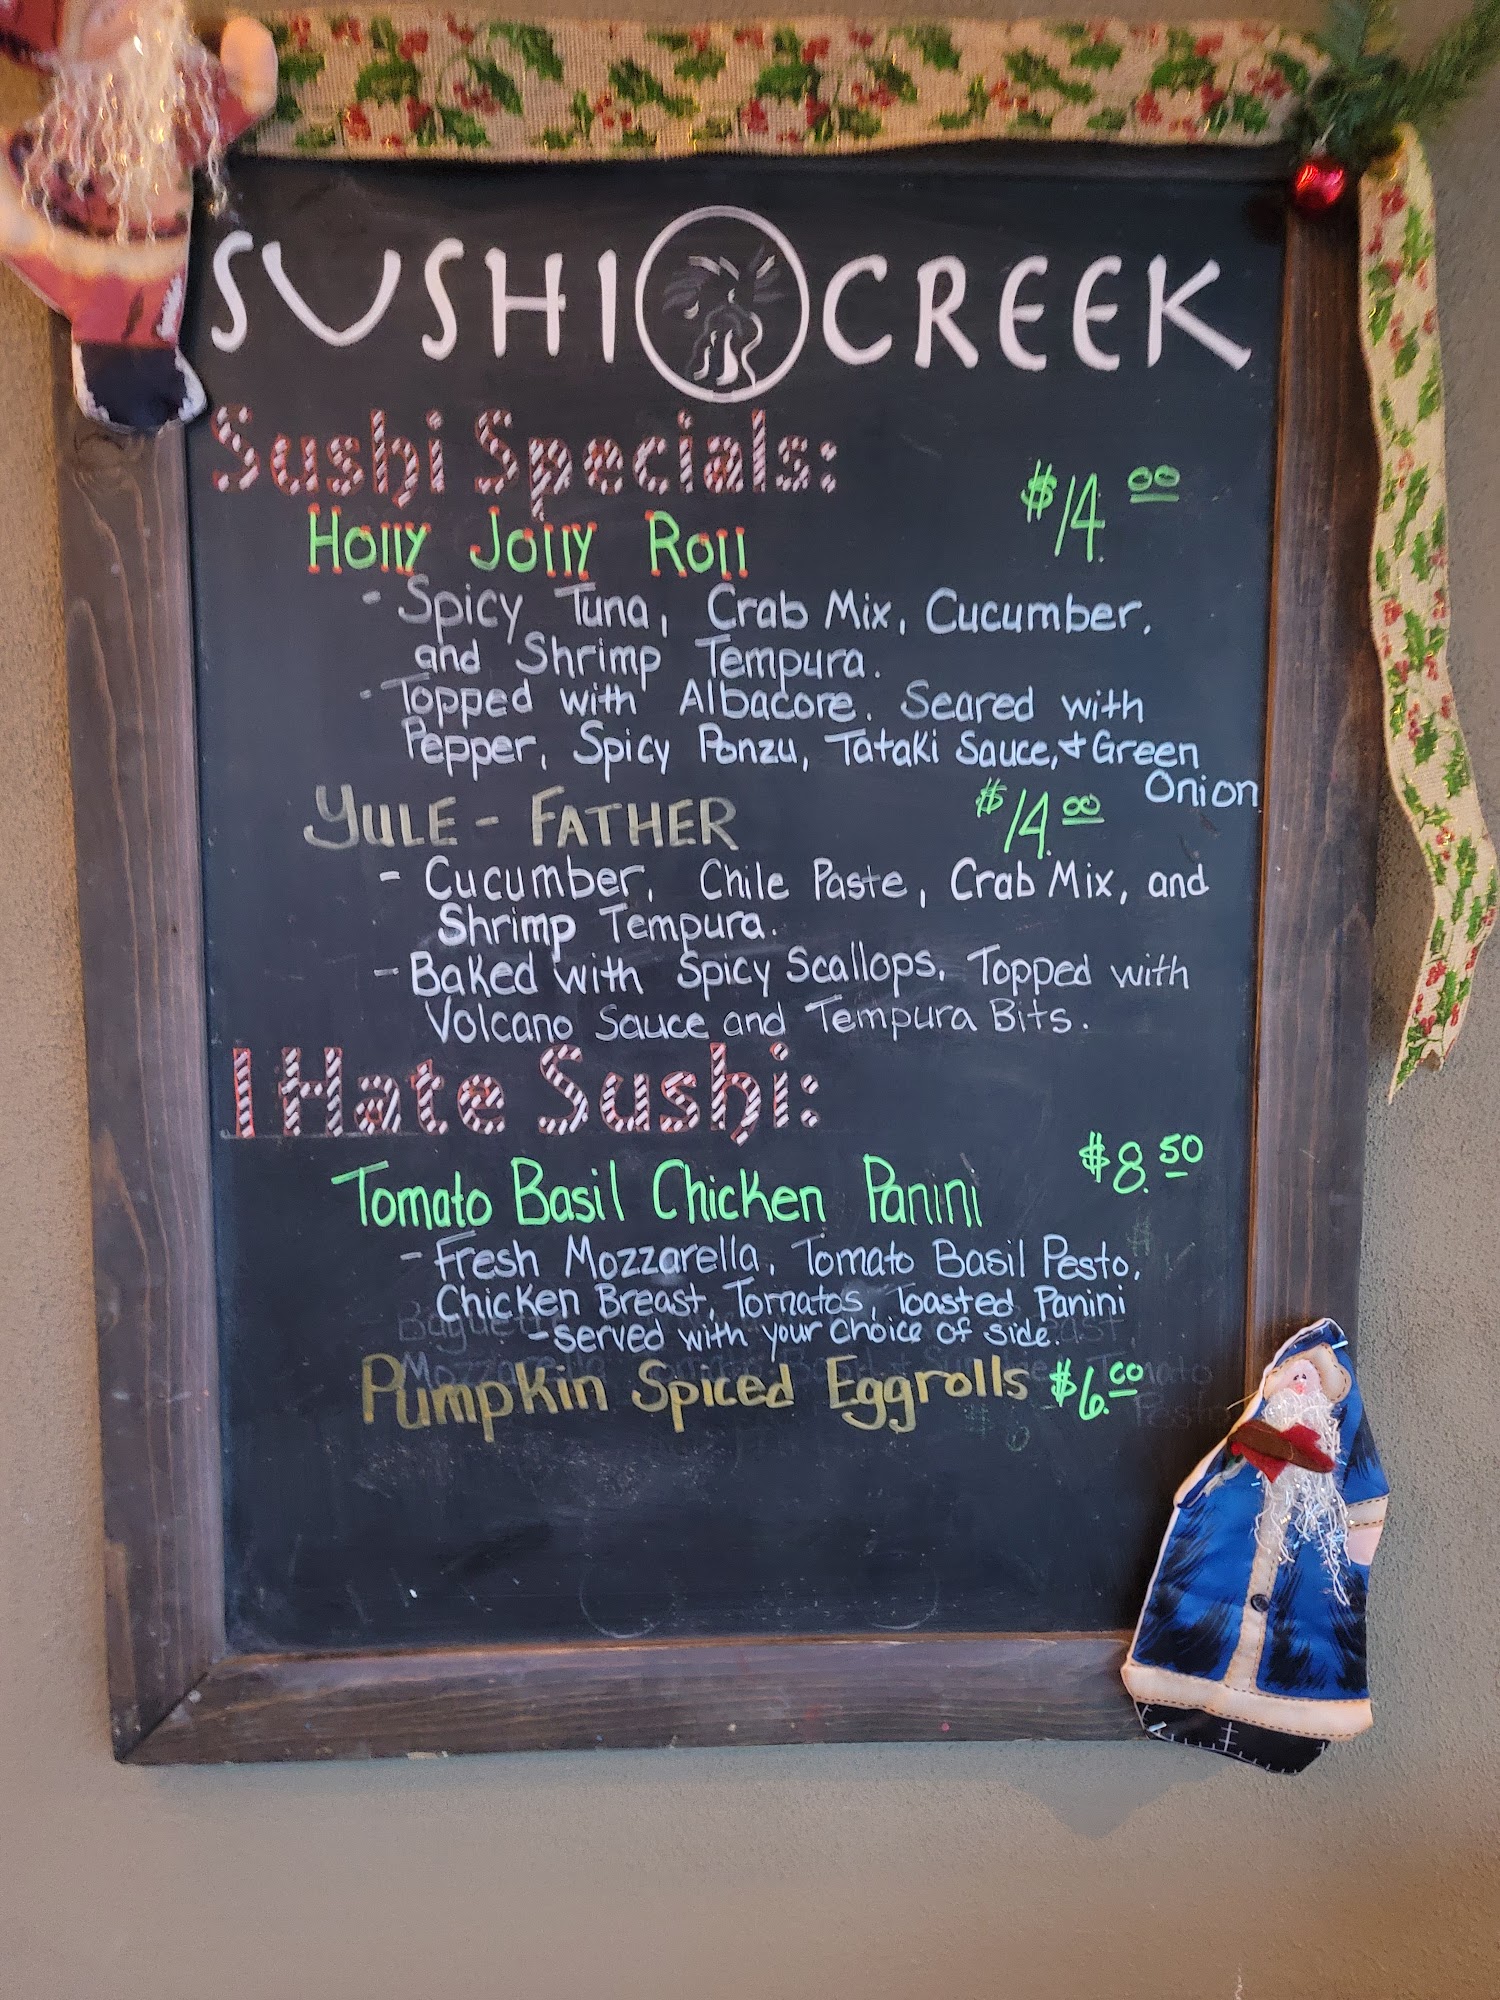 SUSHI CREEK
Sushi Specials:
$14.00
Holly Jolly Roll
- Spicy Tuna, Crab Mix, Cucumber,
and Shrimp Tempura.
- Topped with Albacore. Seared with
Pepper, Spicy Ponzu, Tataki Sauce, + Green
Onion
YULE - FATHER $14.00
- Cucumber, Chile Paste, Crab Mix, and
Shrimp Tempura.
- Baked with Spicy Scallops, Topped with
Volcano Sauce and Tempura Bits.
I Hate Sushi:
$8.50
Tomato Basil Chicken Panini
- Fresh Mozzarella, Tomato Basil Pesto,
Chicken Breast, Tomatos, Toasted Panini
- served with your choice of side.
Pumpkin Spiced Eggrolls $6.00